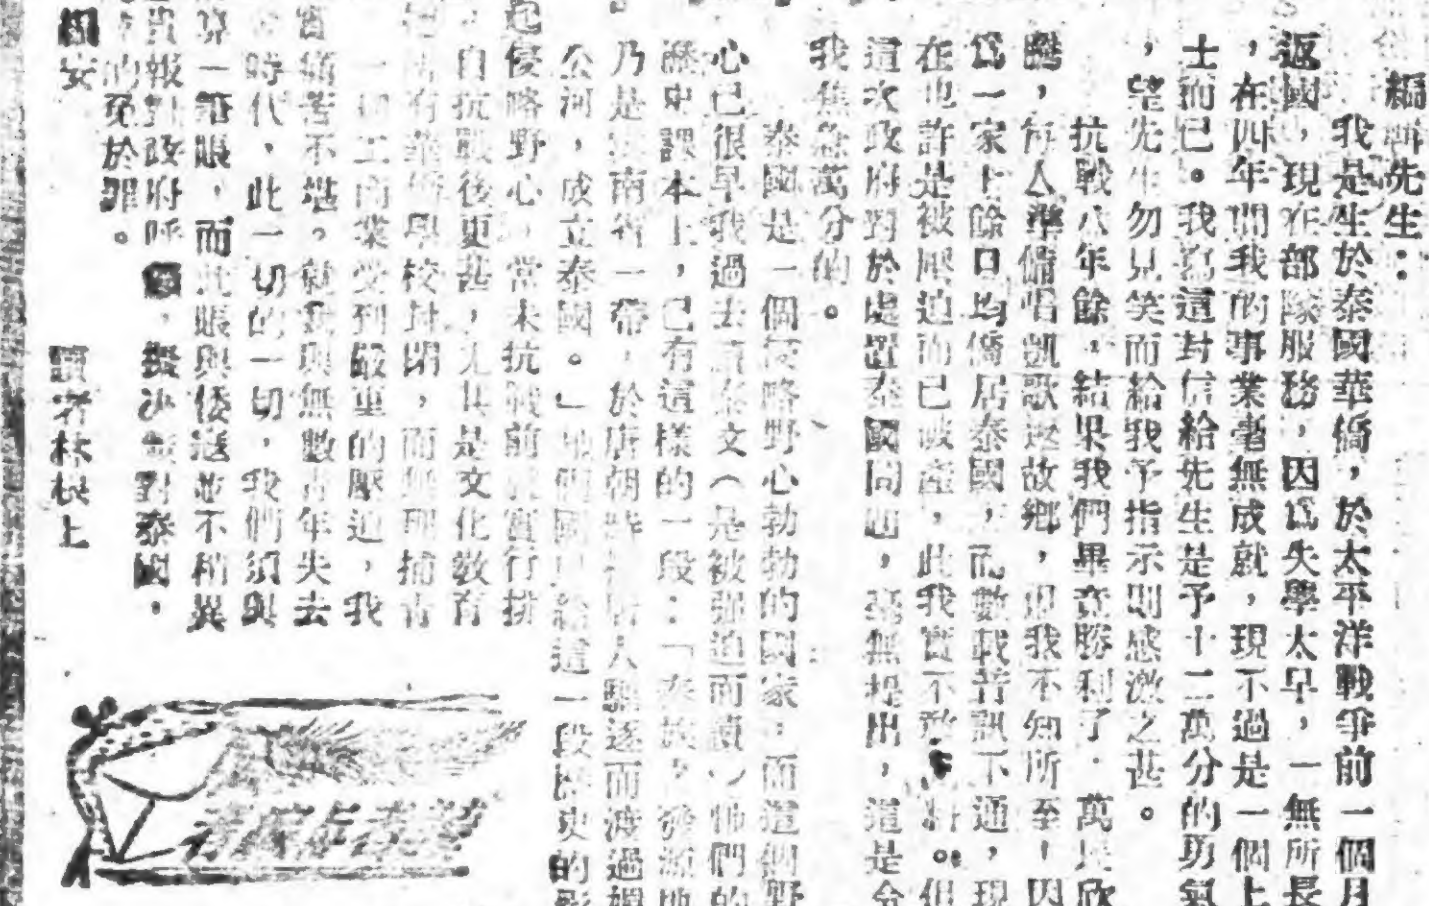 編輯先生：
我是生於泰國華僑，於太平洋戰爭前一個月
返國，現在部隊服務，因爲失學太早，一無所長
，在四年間我的事業毫無成就，現不過是一個上
士而已。我寫這封信給先生是予十二萬分的勇氣
，望先生勿見笑而給我予指示則感激之甚。
抗戰八年餘，結果我們畢竟勝利了，萬民欣
，每人準備唱凱歌返故鄉，但我不知所至，因
爲一家十餘口均僑居泰國，而數載音訊不通，現
在也許是被壓迫而已破產，此我實不敢 料。但
這次政府對於處置泰國問題，毫無提出，這是令
我焦急萬分的。
泰國是一個侵略野心勃勃的國家，而這個野
心已很早我過去讀泰文（是被強迫而讀）他們的
歷史課本上，已有這樣的一段：「泰族，發源地
乃是 南省一帶，於唐朝時 居人驅逐而渡過湄
公河，成立泰國。」 國 給這一段歷史的影
起侵略野心，當未抗戰前 實行排
，自抗戰後更甚，尤其是文化教育
有華僑學校封閉，而無理捕
一切工商業受到嚴重的壓迫，我
痛苦不堪。就我與無數青年失去
時代，此一切的一切，我們須與
算一筆賬，而此賬與倭寇並不稍異
報對政府呼 ， 決 對泰國，
的免於罪。
安
讀者林根上